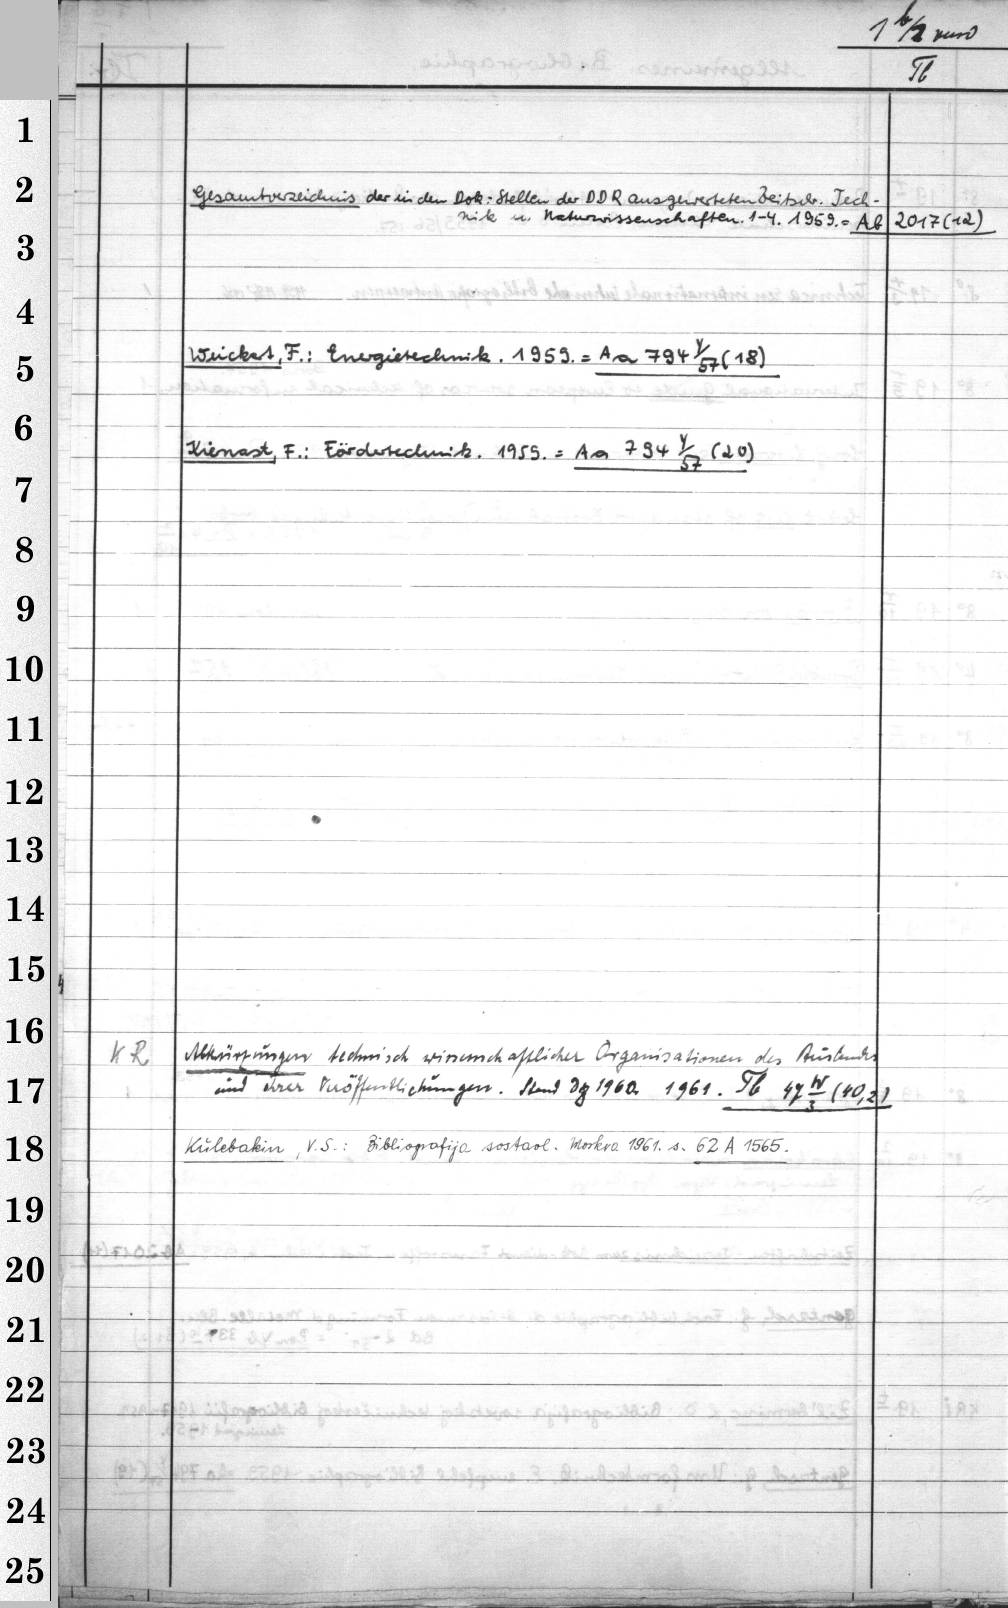 1 b/2 verso
Tb
1
2
Gesamtverzeichnis der in den Dok.-Stellen der DDR ausgewerteten Zeitschr. Tech-
3
nik u. Naturwissenschaften. 1-4. 1959. = Ab 2017 (12)
4
5
Weickert, F.: Energietechnik. 1959. = Aa 794 y/57 (18)
6
Kienast, F.: Fördertechnik. 1959. = Aa 794 y/57 (20)
7
8
9
10
11
12
13
14
15
16
KR Abkürzungen technisch wissenschaftlicher Organisationen des Auslandes
17
und ihrer Veröffentlichungen. Stand 1960. 1961. Tb 47 IV/3 (40,2)
18
Kulebakin, V.S.: Bibliografija sostavl. Moskva 1961. s. 62 A 1565.
19
20
21
22
23
24
25